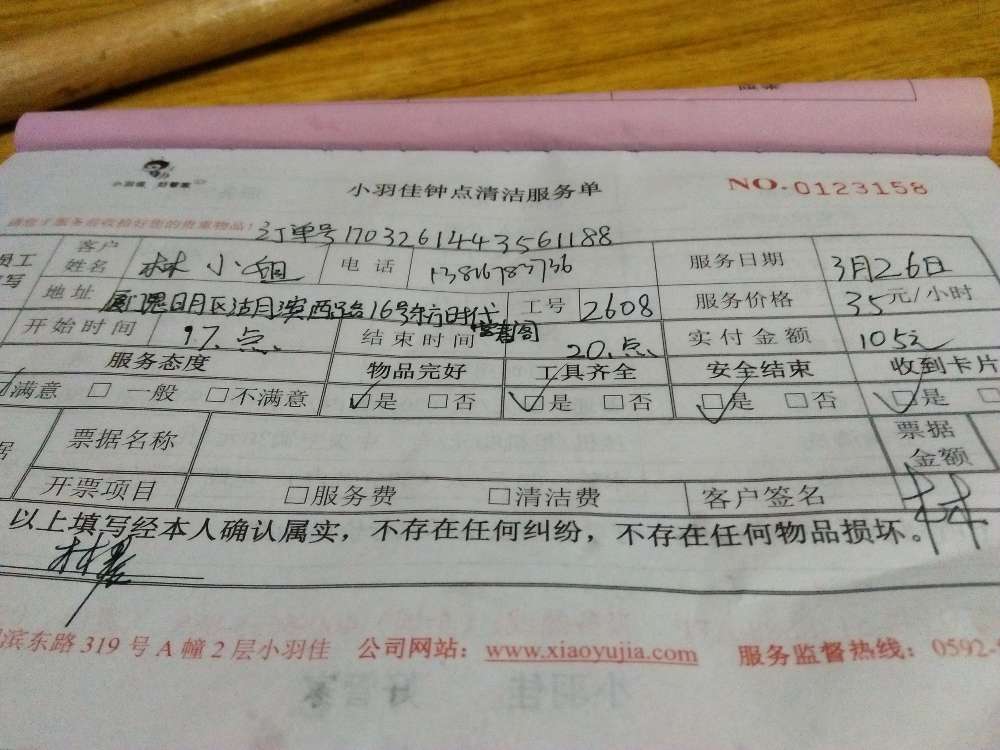 小羽佳 好管家
小羽佳钟点清洁服务单
NO.0123158
请您于服务前收拾好您的贵重物品!
订单号1703261443561188
员工 客户姓名 林小姐 电话 服务日期 3月26日
填写 地址 16号东方时代 工号 2608 服务价格 35元/小时
开始时间 17.点 结束时间 20.点 实付金额 105元
服务态度 物品完好 工具齐全 安全结束 收到卡片
满意 □一般 □不满意 ☑是 □否 ☑是 □否 ☑是 □否 ☑是
票据名称 票据金额
开票项目 □服务费 □清洁费 客户签名 林
以上填写经本人确认属实，不存在任何纠纷，不存在任何物品损坏。
滨东路319号A幢2层小羽佳 公司网站：www.xiaoyujia.com 服务监督热线：0592-